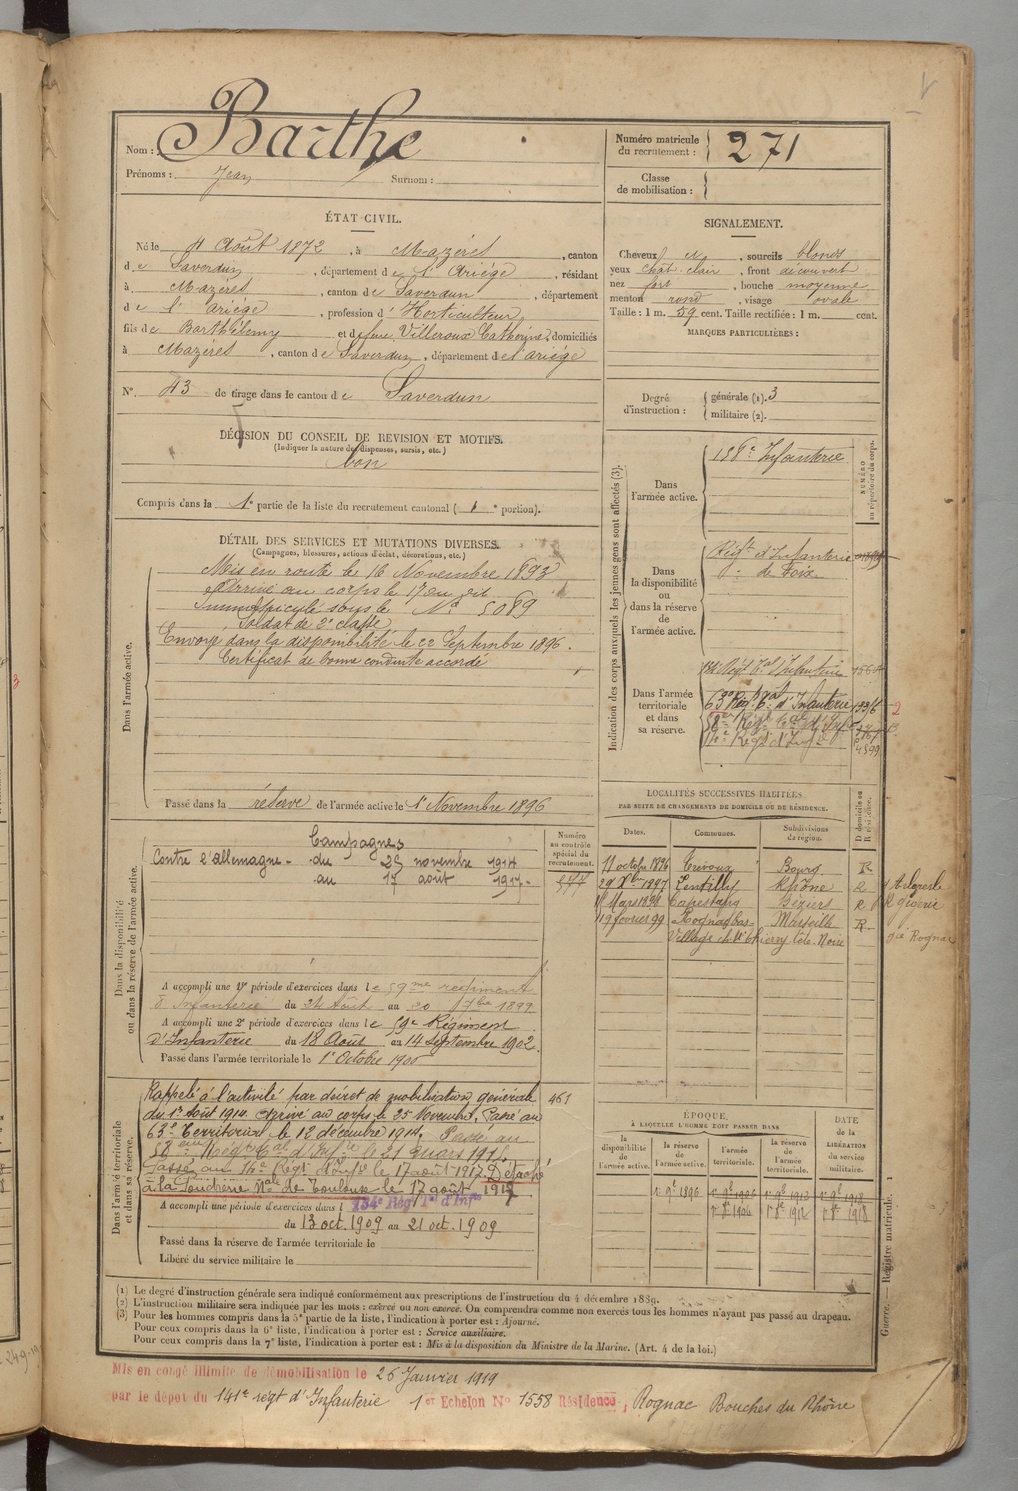 Nom : Barthe
Prénoms : Jean Surnom :
Numéro matricule du recrutement : 271
Classe de mobilisation :
ÉTAT CIVIL.
Né le 4 Août 1872, à Mazéres, canton
de Saverdun, département de l'Ariége, résidant
à Mazéres, canton de Saverdun, département
de l'Ariége, profession d'Horticulteur,
fils de Barthélemy et de feue Villeroux Catherine, domiciliés
à Mazéres, canton de Saverdun, département de l'ariége
N° 43 de tirage dans le canton de Saverdun
DÉCISION DU CONSEIL DE REVISION ET MOTIFS.
(Indiquer la nature des dispenses, sursis, etc.)
bon
Compris dans la 1e partie de la liste du recrutement cantonal ( e portion).
SIGNALEMENT.
Cheveux , sourcils blonds
yeux chât. clair, front découvert
nez fort, bouche moyenne
menton rond, visage ovale
Taille : 1 m. 59 cent. Taille rectifiée : 1 m. cent.
MARQUES PARTICULIÈRES :
Degré d'instruction : générale (1). 3
militaire (2).
DÉTAIL DES SERVICES ET MUTATIONS DIVERSES.
(Campagnes, blessures, actions d'éclat, décorations, etc.)
Dans l'armée active.
Mis en route le 16 Novembre 1893
Arrivé au corps le 17 en dit
Immatriculé sous le N° 5089
Soldat de 2e classe
Envoyé dans la disponibilité le 22 Septembre 1896.
Certificat de bonne conduite accordé
Passé dans la réserve de l'armée active le 1er Novembre 1896
Indication des corps auxquels les jeunes gens sont affectés (3).
NUMÉRO au répertoire du corps.
Dans l'armée active. Infanterie
Dans la disponibilité ou dans la réserve de l'armée active.
Régt d'Infanterie
de Foix
Dans l'armée territoriale et dans sa réserve.
Régt Tal Infanterie
63e Rég. Tal d'Infanterie
58e Régt Tal d'Infie
Régt d'Infie 4599
LOCALITÉS SUCCESSIVES HABITÉES
PAR SUITE DE CHANGEMENTS DE DOMICILE OU DE RÉSIDENCE.
Dates. Communes. Subdivisions de région. D domicile ou R résidence.
11 octobre 1896 Trévoux Bourg R
29 Xbre 1897 Lentilly Rhône R
Mars 1898 Capestang Béziers R
19 février 99 Rognac Marseille R
gé Rognac
Dans la disponibilité ou dans la réserve de l'armée active.
Numéro au contrôle spécial du recrutement.
Campagnes
Contre l'allemagne - du 25 novembre 1914
au 17 août 1917 -
A accompli une 1re période d'exercices dans le 59me régiment
d'Infanterie du 24 Août au 20 7bre 1899
A accompli une 2e période d'exercices dans le 59e Régiment
d'Infanterie du 18 Août au 14 Septembre 1902.
Passé dans l'armée territoriale le 1er Octobre 1906
Dans l'armée territoriale et dans sa réserve.
Rappelé à l'activité par décret de mobilisation générale 461
du 1er Août 1914. Arrivé au corps le 25 Novembre. Passé au
63e Territorial le 12 décembre 1914. Passé au
58ème Régt Tal d'Infie le 21 mars 191
Passé au Régt d'Infie le 17 août 1917. Détaché
à la Poudrerie Nale de Toulouse le 17 août 1917
A accompli une période d'exercices dans l 134e Régt Tal d'Infie
du 13 oct. 1909 au 21 oct. 1909
Passé dans la réserve de l'armée territoriale le
Libéré du service militaire le
ÉPOQUE
A LAQUELLE L'HOMME DOIT PASSER DANS
la disponibilité de l'armée active. la réserve de l'armée active. l'armée territoriale. la réserve de l'armée territoriale. DATE DE LA LIBÉRATION du service militaire.
Guerre. — Registre matricule. 1
(1) Le degré d'instruction générale sera indiqué conformément aux prescriptions de l'instruction du 4 décembre 1889.
(2) L'instruction militaire sera indiquée par les mots : exercé ou non exercé. On comprendra comme non exercés tous les hommes n'ayant pas passé au drapeau.
(3) Pour les hommes compris dans la 5e partie de la liste, l'indication à porter est : Ajourné.
Pour ceux compris dans la 6e liste, l'indication à porter est : Service auxiliaire.
Pour ceux compris dans la 7e liste, l'indication à porter est : Mis à la disposition du Ministre de la Marine. (Art. 4 de la loi.)
Mis en congé illimité de démobilisation le 26 Janvier 1919
par le dépôt du 141e régt d'Infanterie 1er Echelon N° 1558 Résidence, Rognac Bouches du Rhône